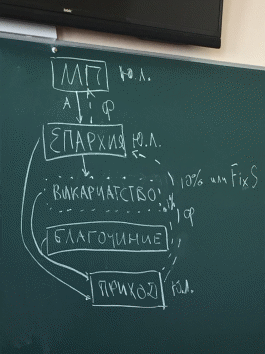 МП Ю.Л.
А Ф
ЕПАРХИЯ Ю.Л.
10% или Fix$
ВИКАРИАТСТВО
Ф
БЛАГОЧИНИЕ
ПРИХОД Ю.Л.